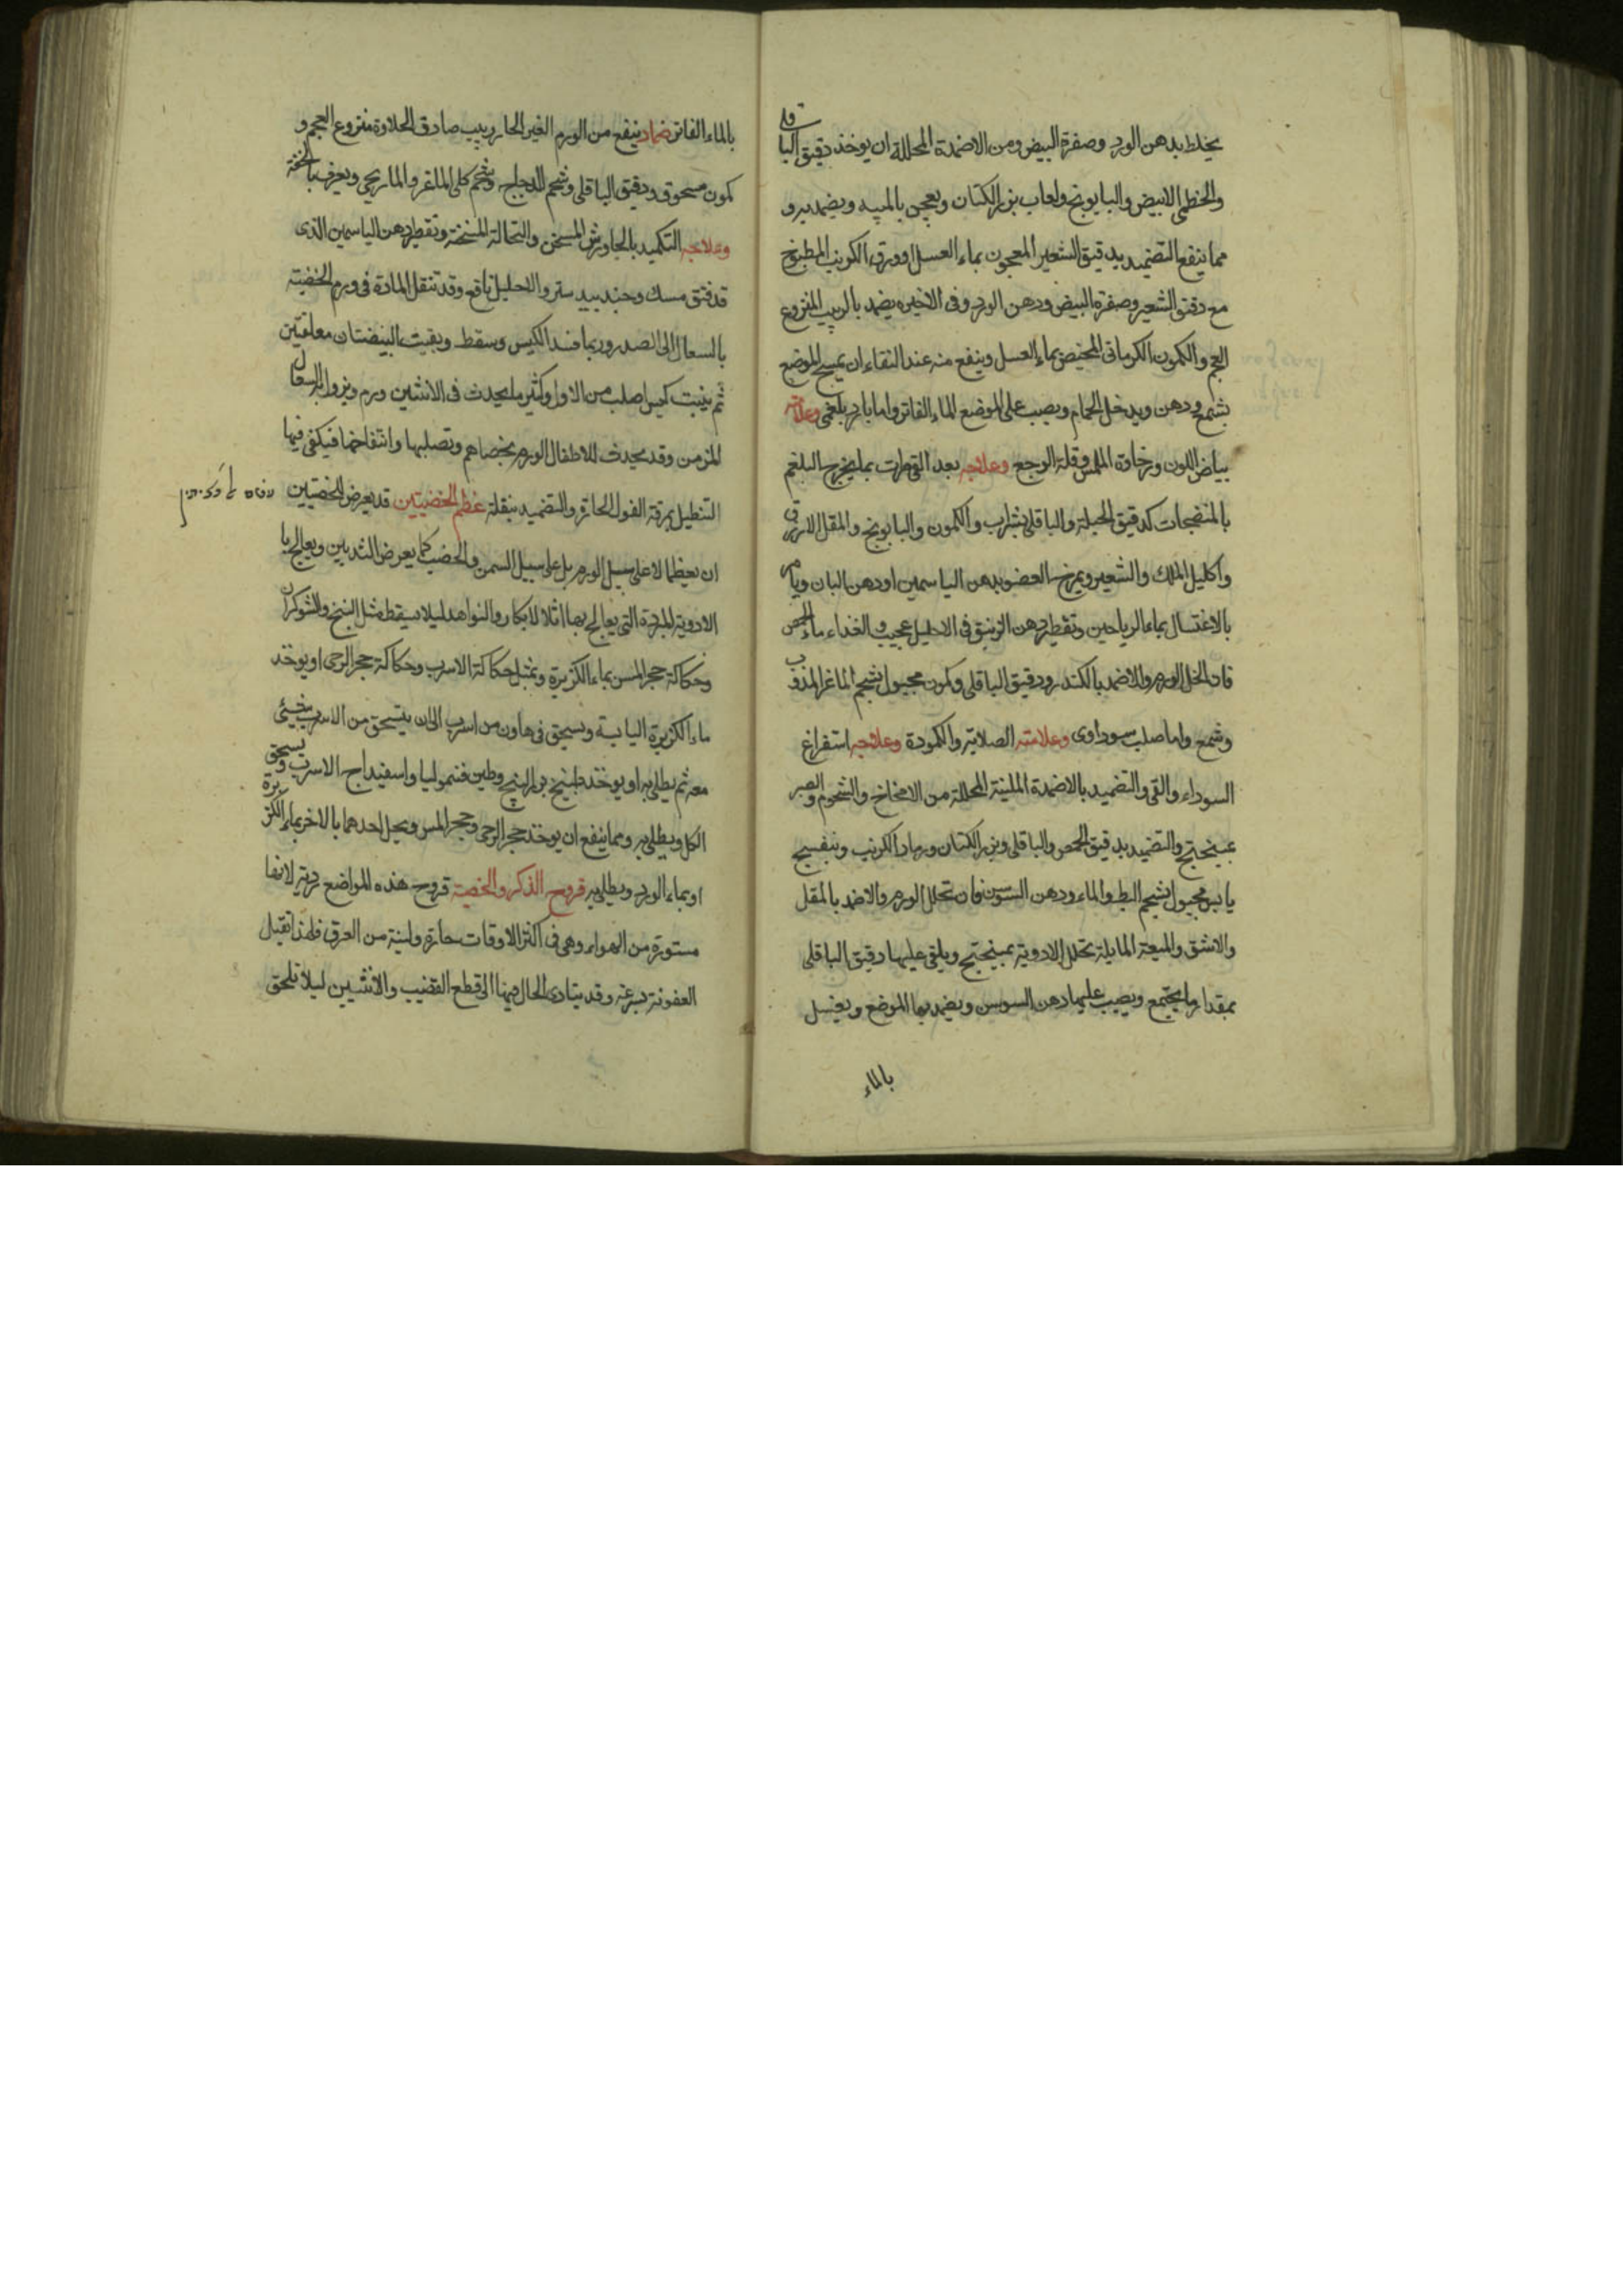 يخلط بدهن الورد وصفرة البيض ومن الاضمدة المحللة ان يوخذ دقيق الباقلى
والخطمى الابيض والبابونج ولعاب بزر الكتان ويعجن بالميبه ويضمد به و
مما ينفع التضميد بدقيق الشعير المعجون بماء العسل او ورق الكرنب المطبوخ
مع دقيق الشعير وصفرة البيض ودهن الورد وفى الاخيره يضمد بالزبيب المنزوع
العجم والكمون الكرمانى بماء العسل وينفع منه عند النقاء ان يمسح الموضع
بشمع ودهن ويدخل الحمام ويصب على الموضع الماء الفاتر واما بارد بلغمى وعلامته
بياض اللون ورخاوة الملمس وقلة الوجع وعلاجه بعد القى مرات بما يخرج البلغم
بالمنضجات كدقيق الحلبة والباقلى بشراب والكمون والبابونج والمقل الازرق
واكليل الملك والشعير ويمرخ العضو بدهن الياسمين او دهن البان ويامر
بالاغتسال بماء الرياحين وتقطير دهن الزنبق فى الاحليل عجيب والغذاء ماء الحمص
فان انحل الورم والا ضمد بالكندر ودقيق الباقلى وكمون مجبول بشحم الماعز المذوب
وشمع واما صلب سوداوى وعلامته الصلابة والكمودة وعلاجه استفراغ
السوداء والقى والتضميد بالاضمدة الملينة المحللة من الامخاخ والشحوم والصبر
بمبنحتج والتضميد بدقيق الحمص والباقلى وبزر الكتان ورماد الكرنب وبنفسج
يابس مجبول بشحم البط والماء ودهن السوسن فان تحلل الورم والا ضمد بالمقل
والاشق والميعة السايلة تحلل الادوية بمبنحتج ويلقى عليها دقيق الباقلى
بمقدار ما يجتمع ويصب عليها دهن السوسن ويضمد بها الموضع ويغسل
بالماء
بالماء الفاتر ضماد ينفع من الورم الغير الحار زبيب صادق الحلاوة منزوع العجم و
كمون مسحوق ودقيق الباقلى وشحم الدجاج وشحم كلى الماعز واما ريحى ويعرف
وعلاجه التكميد بالجاورش المسخن والنخالة المسخنة وتقطير دهن الياسمين الذى
قد فتق مسك وجندبيدستر والاحليل نافع وقد تنقل المادة فى ورم الخصية
بالسعال الى الصدر وربما فسد الكيس وسقط وبقيت البيضتان معلقتين
ثم ينبت كيس اصلب من الاول وكثير ما يحدث فى الانثيين ورم ويزول بالسعال
المزمن وقد يحدث للاطفال الورم بخصاهم وتصلبها وانتفاخها فيكفى فيها
التنطيل بمرقة الفول الحارة والتضميد بنفله عظم الخصيتين قد يعرض للخصيتين
ان يعظما لا على سبيل الورم بل على سبيل السمن والخصب كما يعرض للثديين ويعالج با
الادوية المبردة التى يعالج بها اثداء الابكار والنواهد ليلا يسقط مثل البنج والشوكران
وحكاكة حجر المسن بماء الكزبرة وبمثل حكاكة الاسرب وحكاكة حجر الرحى او يوخذ
ماء الكزبرة اليابسة ويسحق فى هاون من اسرب الى ان ينسحق من الاسرب شيئى
معه ثم يطلى به او يوخذ طبيخ بزر البنج وطين قيموليا واسفيداج الاسرب ويسحق
الكل ويطلى به ومما ينفع ان يوخذ حجر الرحى وحجر المسن ويحل احدهما بالاخر بماء الكزبرة
او بماء الورد ويطلى به قروح الذكر والخصية قروح هذه المواضع ردية لانها
مستورة من الهواء وهى فى اكثر الاوقات حارة ولينة من العرق فلهذا تقبل
العفونة بسرعة وقد يتادى الحال فيها الى قطع القضيب والانثيين ليلا تلحق